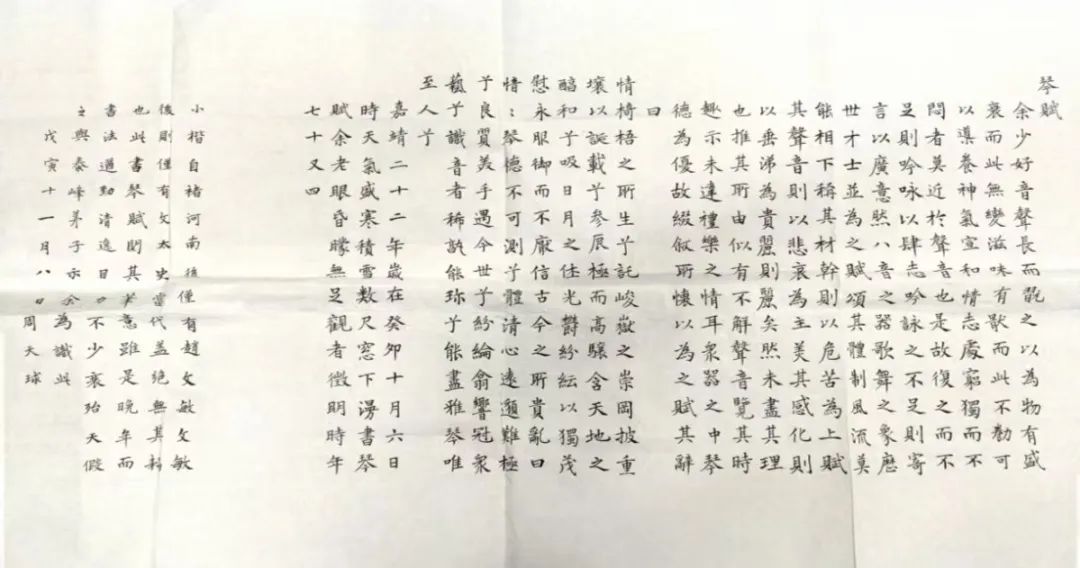 琴賦
余少好音聲長而翫之以為物有盛
衰而此無變滋味有猒而此不勌可
以導養神氣宣和情志處窮獨而不
悶者莫近於聲音也是故復之而不
足則吟咏以肆志吟詠之不足則寄
言以廣意然八音之器歌舞之象歷
世才士並為之賦頌其體制風流莫
能相下稱其材幹則以危苦為上賦
其聲音則以悲哀為主美其感化則
以垂涕為貴麗則麗矣然未盡其理
也推其所由似有不解聲音覽其時
趣亦未達禮樂之情耳衆器之中琴
德為優故綴敘所懷以為之賦其辭
曰
情椅梧之所生兮託峻嶽之崇岡披重
壤以誕載兮參辰極而高驤含天地之
醕和兮吸日月之休光欝紛紜以獨茂
慰永服御而不厭信古今之所貴亂曰
愔:琴德不可測兮體清心遠邈難極
兮良質美手遇今世兮紛綸翕響冠衆
藝兮識音者稀孰能珎兮能盡雅琴唯
至人兮
嘉靖二十二年歲在癸卯十月六日
時天氣盛寒積雪數尺窓下漫書琴
賦余老眼昏矇無足觀者徵明時年
七十又四
小楷自褚河南後僅有趙文敏文敏
後則僅有文太史當代盖絕無其科
也此書琴賦閒其筆意雖是晚年而
書法遒勁清逸日日不少衰殆天假
之與泰峰弟子示余為識此
戊寅十一月八日周天球